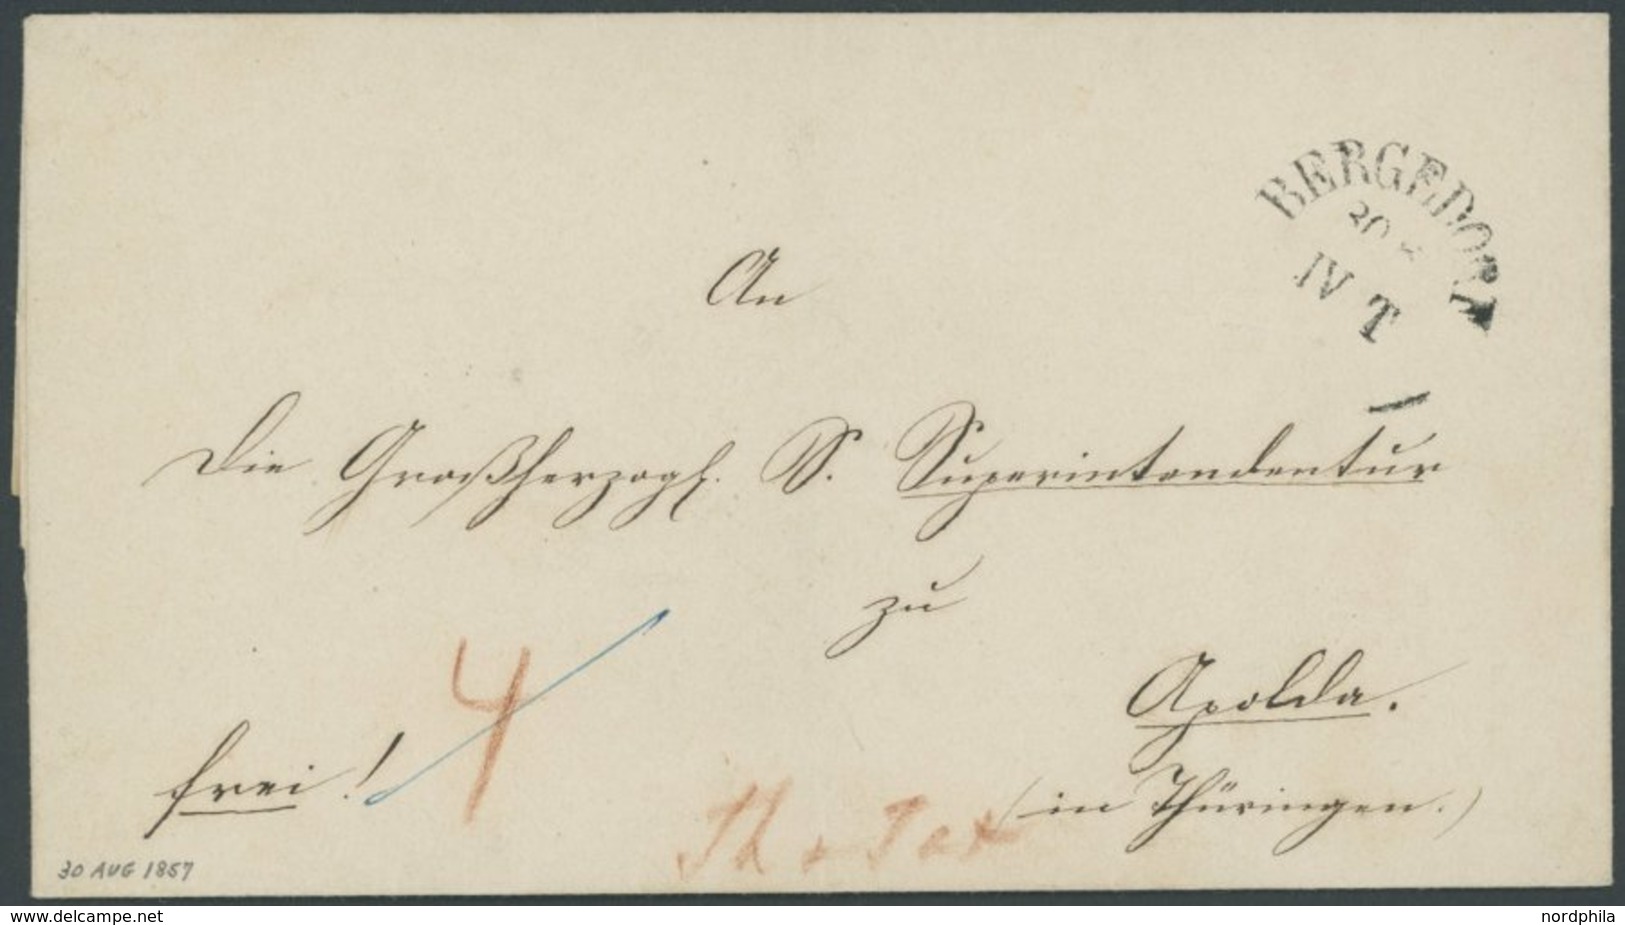 BERGEDORF
30 8
IV T
An
Die Großherzogl. S. Superintendentur
zu
Apolda.
(in Thüringen.)
frei!
4
Th + Tax
30 AUG 1857
www.delcampe.net
nordphila